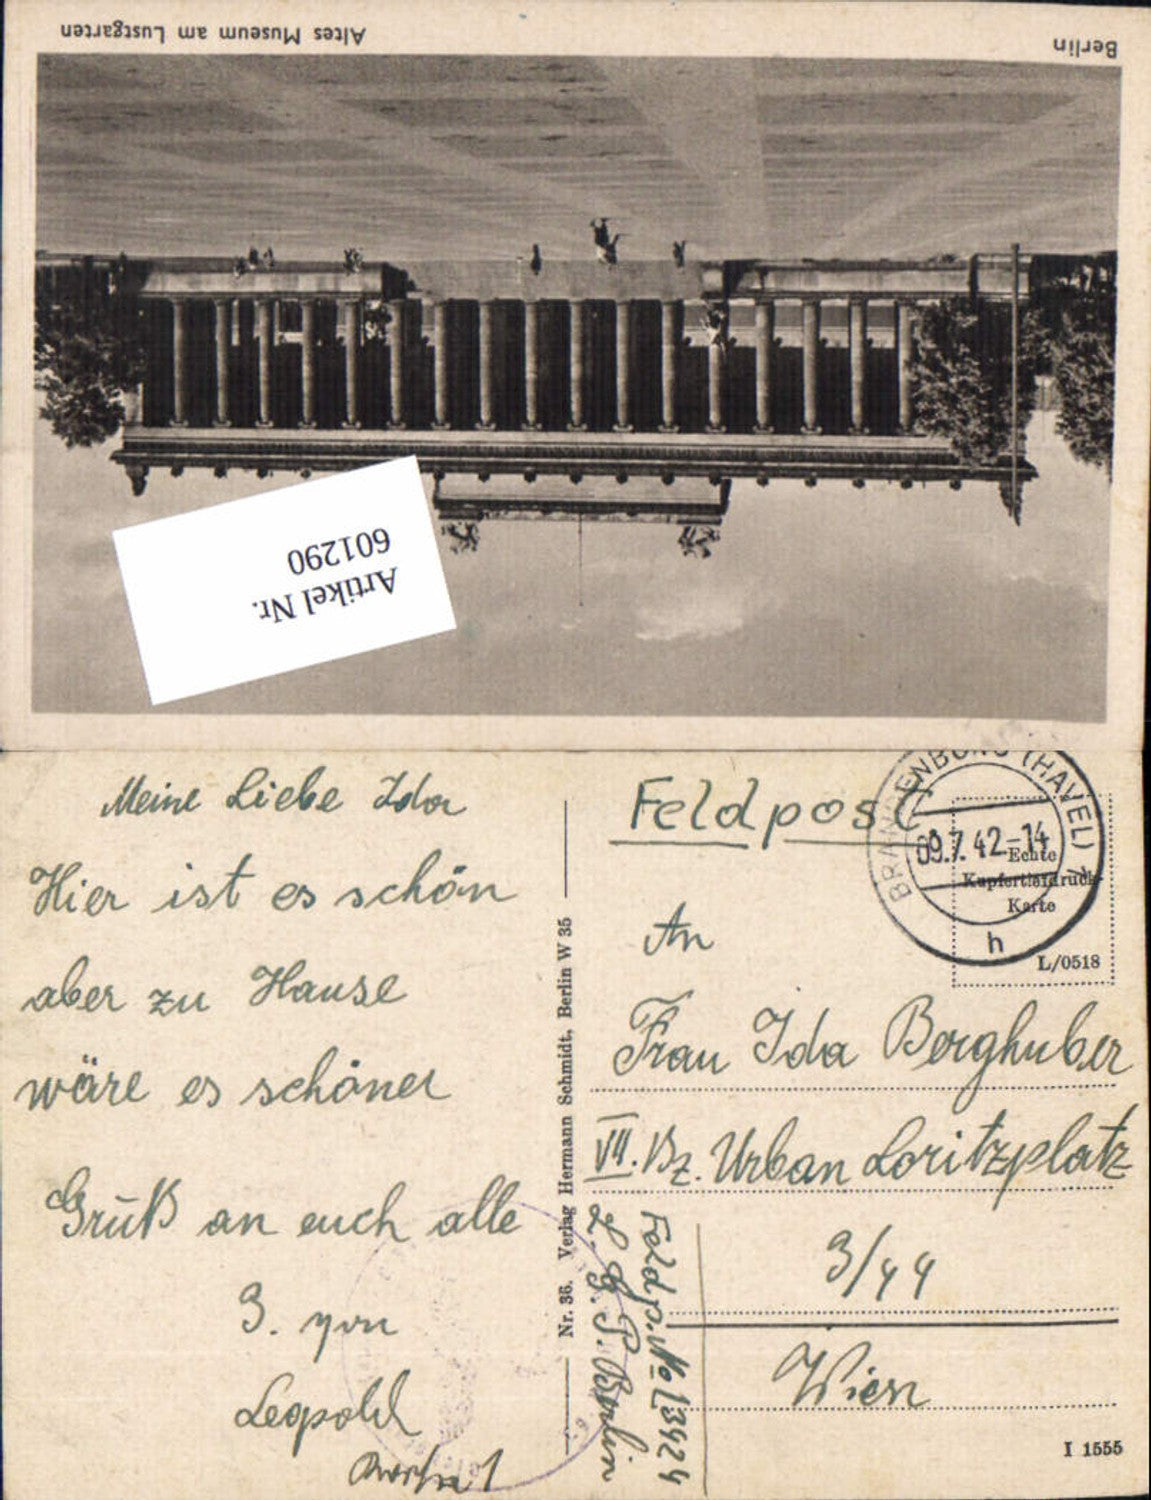 Berlin
Altes Museum am Lustgarten
Artikel Nr.
601290
Meine Liebe Ida
Hier ist es schön
aber zu Hause
wäre es schöner
Gruß an euch alle
3. von
Leopold
Nr. 36. Verlag Hermann Schmidt, Berlin W 35
Feldpost
BRANDENBURG (HAVEL)
09.7.42-14
h
Echte
Kupfertiefdruck-
Karte
L/0518
An
Frau Ida Berghuber
VII. Bz. Urban Loritzplatz
3/44
Wien
Feldp. No L 3424
L. G. P. Berlin
I 1555